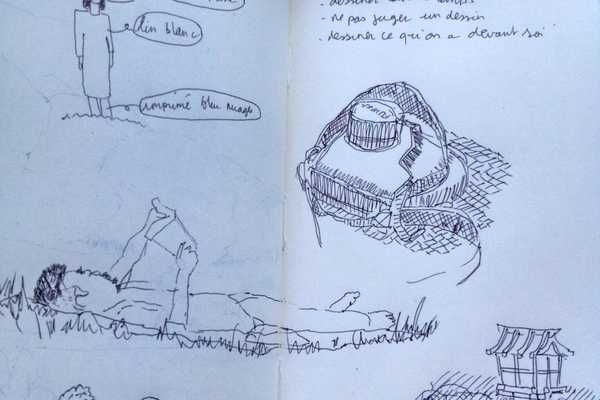 lin blanc
imprimé bleu nuages
- ne pas juger un dessin
- dessiner ce qu'on a devant soi